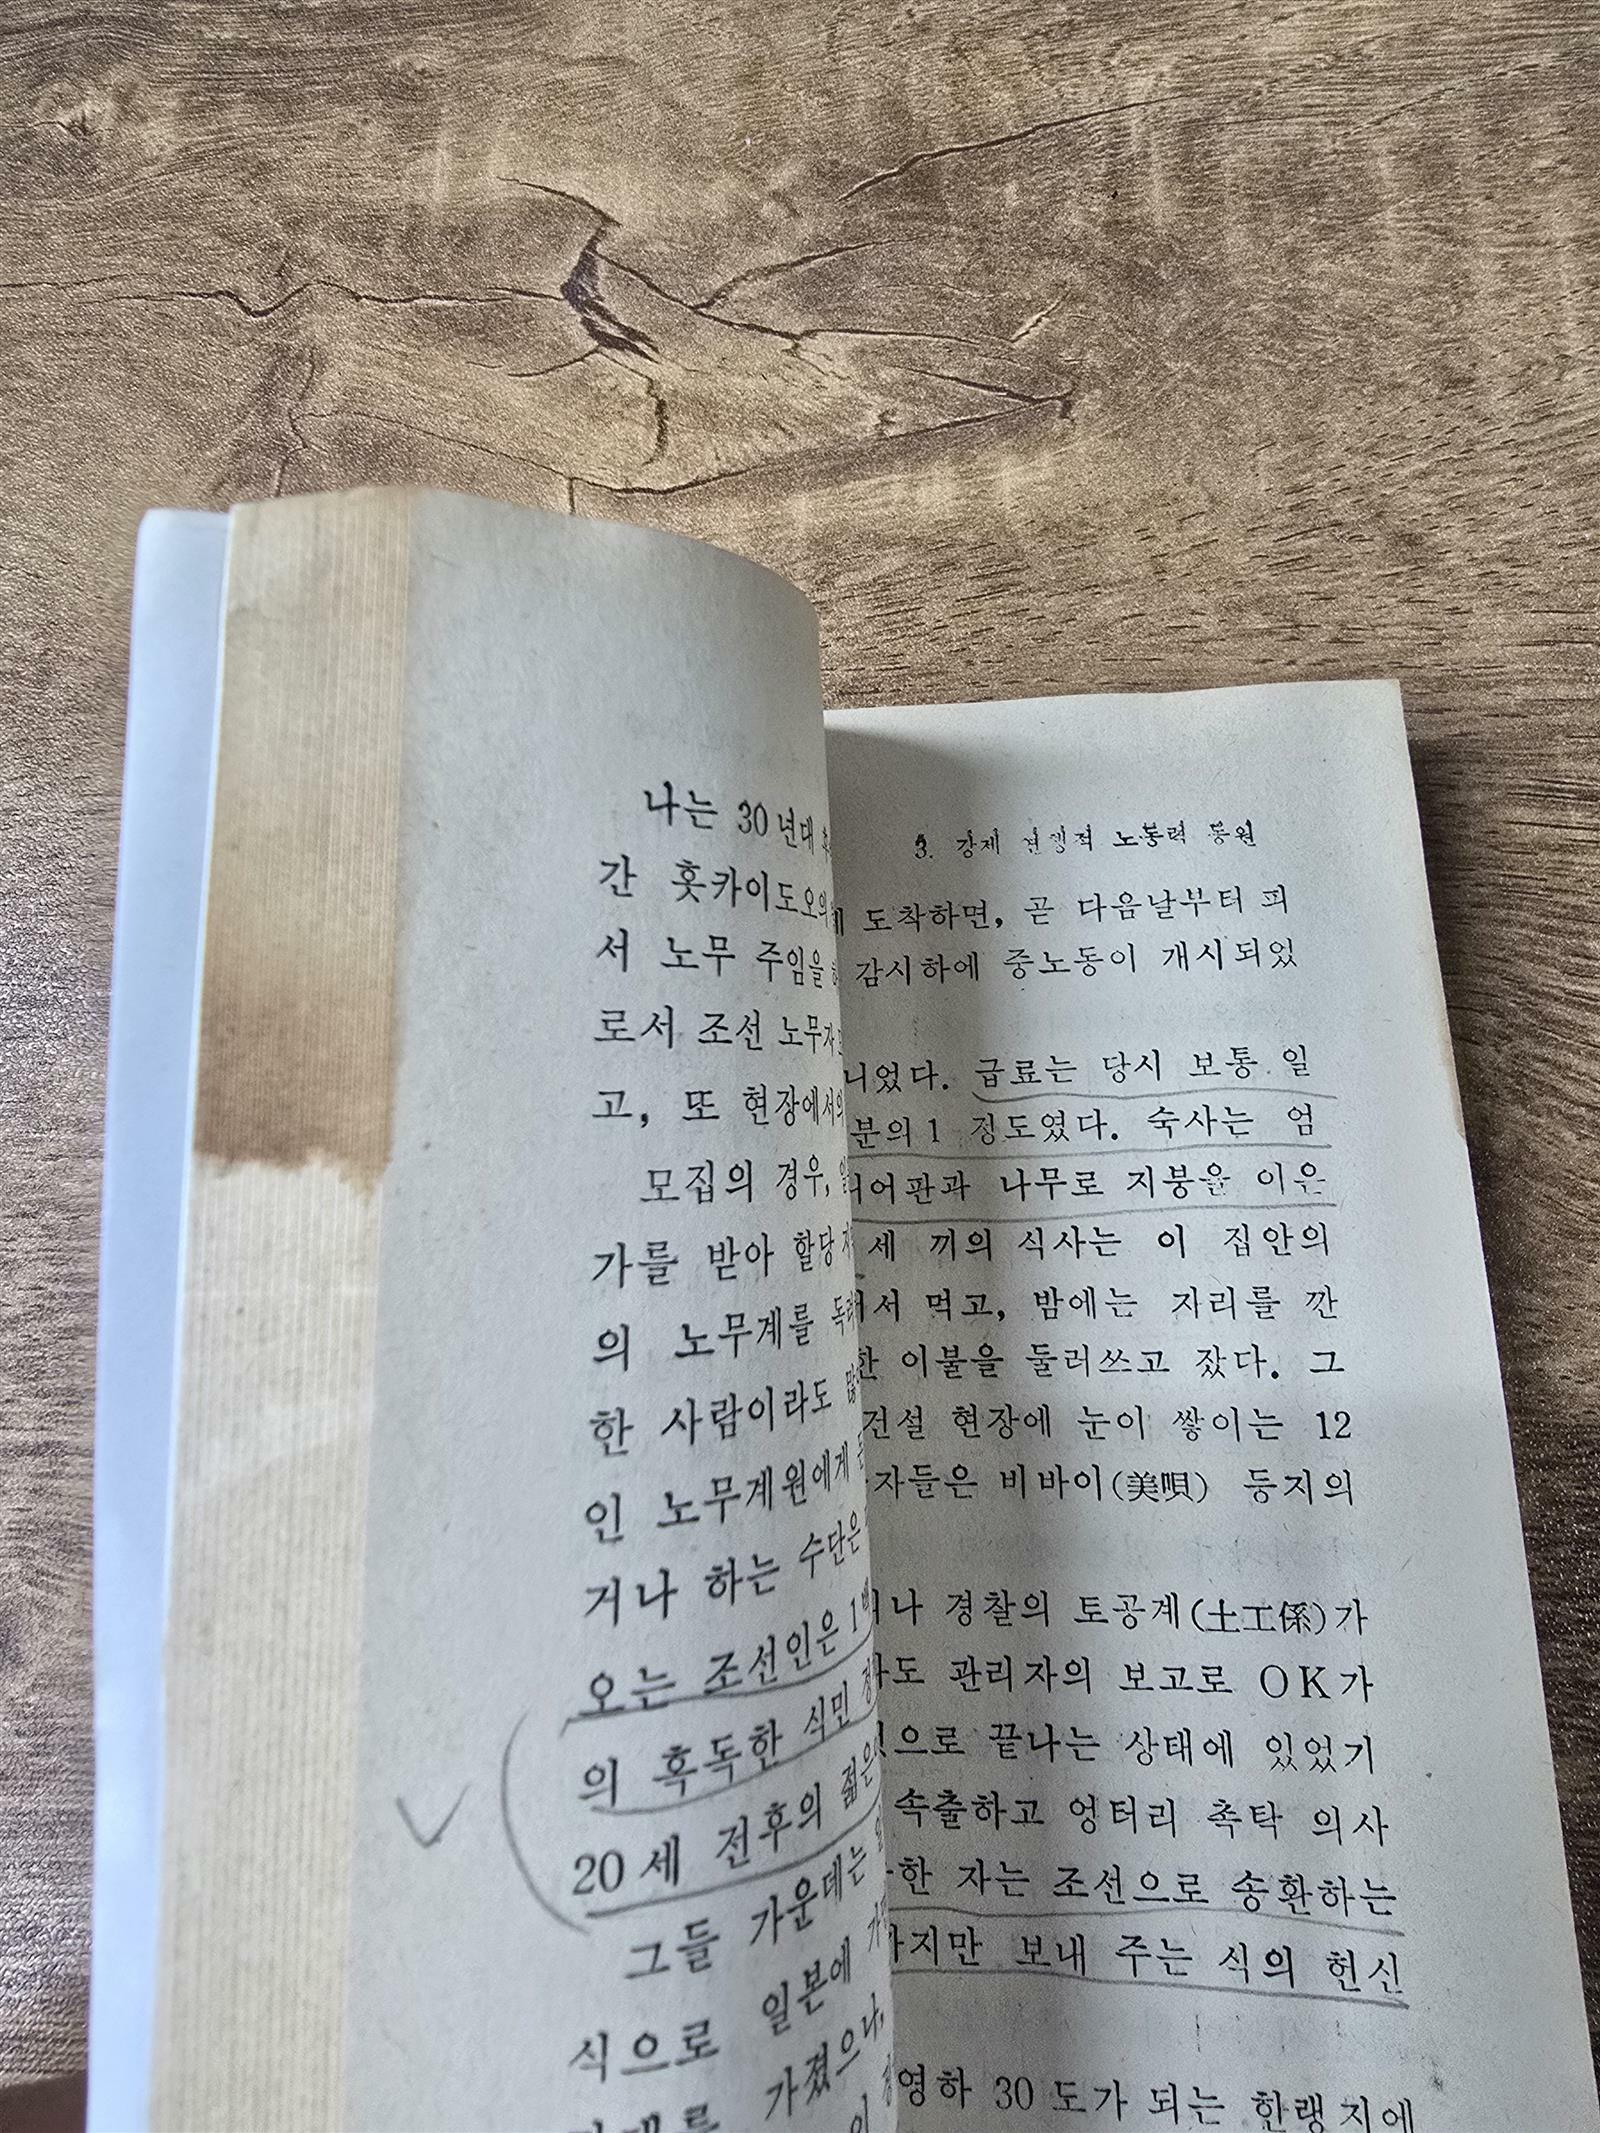 나는 30년대
간 홋카이도오의
서 노무 주임을
로서 조선 노무자
고, 또 현장에서의
모집의 경우,
가를 받아 할당
의 노무계를
한 사람이라도
인 노무계원에게
거나 하는 수단은
오는 조선인은 1
의 혹독한 식민
20세 전후의 젊은
그들 가운데는
식으로 일본에
가졌으나,
3. 강제 연행적 노동력 동원
도착하면, 곧 다음날부터 피
감시하에 중노동이 개시되었
니었다. 급료는 당시 보통 일
분의 1 정도였다. 숙사는 엄
나무로 지붕을 이은
세 끼의 식사는 이 집안의
서 먹고, 밤에는 자리를 깐
한 이불을 둘러쓰고 잤다. 그
건설 현장에 눈이 쌓이는 12
자들은 비바이(美唄) 등지의
나 경찰의 토공계(土工係)가
도 관리자의 보고로 OK가
으로 끝나는 상태에 있었기
속출하고 엉터리 촉탁 의사
한 자는 조선으로 송환하는
까지만 보내 주는 식의 헌신
영하 30도가 되는 한랭지에